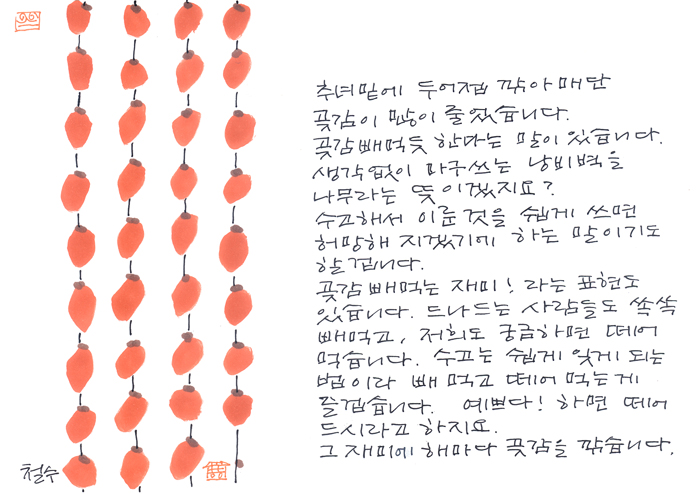 추녀밑에 두어접 깎아 매단
곶감이 많이 줄었습니다.
곶감 빼먹듯 한다는 말이 있습니다.
생각없이 마구쓰는 낭비벽을
나무라는 뜻이겠지요?
수고해서 이룬것을 쉽게 쓰면
허망해 지겠기에 하는 말이기도
할겁니다.
곶감 빼먹는 재미! 라는 표현도
있습니다. 드나드는 사람들도 쏙쏙
빼먹고, 저희도 궁금하면 떼어
먹습니다. 수고는 쉽게 잊게 되는
법이라 빼 먹고 떼어 먹는게
즐겁습니다. 예쁘다! 하면 떼어
드시라고 하지요.
그 재미에 해마다 곶감을 깎습니다.
철수